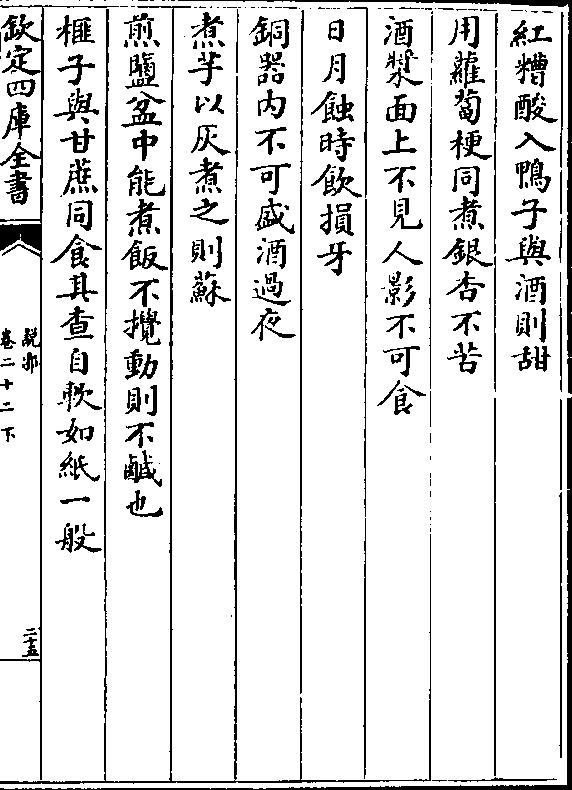 紅糟酸入鴨子與酒則甜
用蘿蔔梗同煮銀杏不苦
酒漿面上不見人影不可食
日月蝕時飲損牙
銅器内不可盛酒過夜
煮芋以灰煮之則蘇
煎鹽盆中能煮飯不攪動則不鹹也
榧子與甘蔗同食其查自軟如紙一般
欽定四庫全書
說郛
卷二十二下
二十五